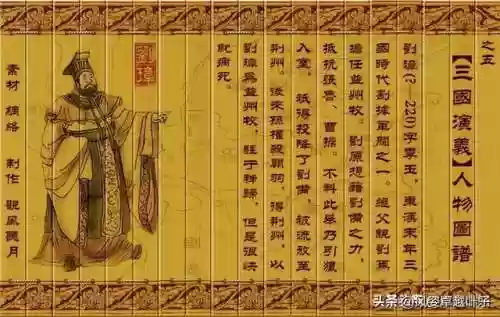 之五
【三國演義】人物圖譜
劉璋(? 220)字季玉，東漢末年三
國時代割據軍閥之一。繼父親劉焉
擔任益州牧。劉原想藉劉備之力，
抵抗張魯、曹操。不料此舉乃引狼
入室，祇得投降了劉備，被流放至
荊州。後來孫權殺關羽，得荊州，以
劉璋為益州牧，駐于秭歸，但是很快
病死。
劉璋
素材 網絡 制作 觀風聽月
头条 @卓越叶子